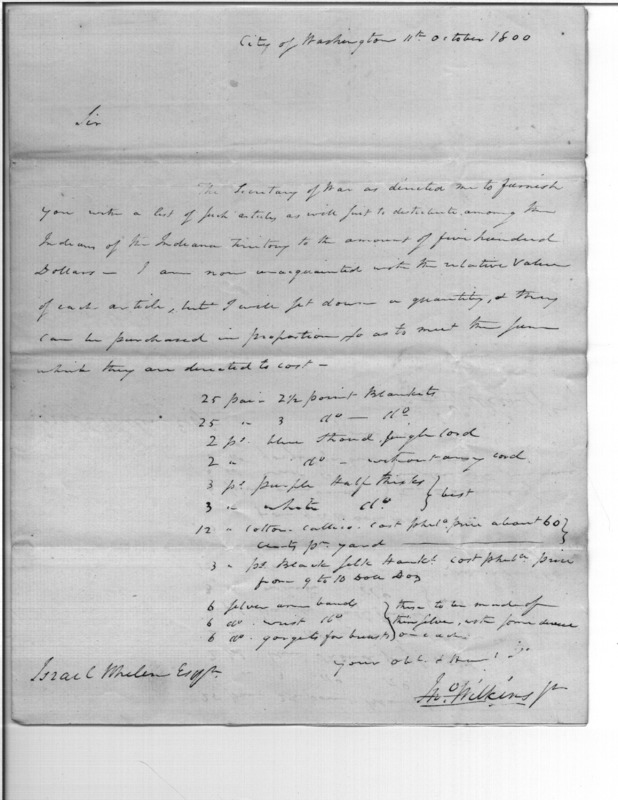 City of Washington 11th October 1800
Sir
The Secretary of War as directed me to furnish
you with a list of such articles as will suit to distribute among the
Indians of the Indiana Territory to the amount of five hundred
Dollars — I am now unacquainted with the relative value
of each article, but I will set down a quantity, & they
can be purchased in proportion so as to meet the sum
which they are directed to cost —
25 pair 2½ point Blankets
25 " 3 do — do
2 ps. blue Stroud single Cord
2 " do — without any cord
3 ps. purple Half thicks } best
3 " white do
12 " Cotton Callico. cost Phila. price about 60 }
Cents pr. yard
3 " ps Black silk Hankf. cost Phila. price
from 9 to 10 Doll Doz
6 silver arm bands } these to be made of
6 do. wrist do } thin silver, with some device
6 do. gorgets for breasts } on each
Your Obt. Hum. Sr.
Israel Whelen Esqr.
Jno. Wilkins Jr